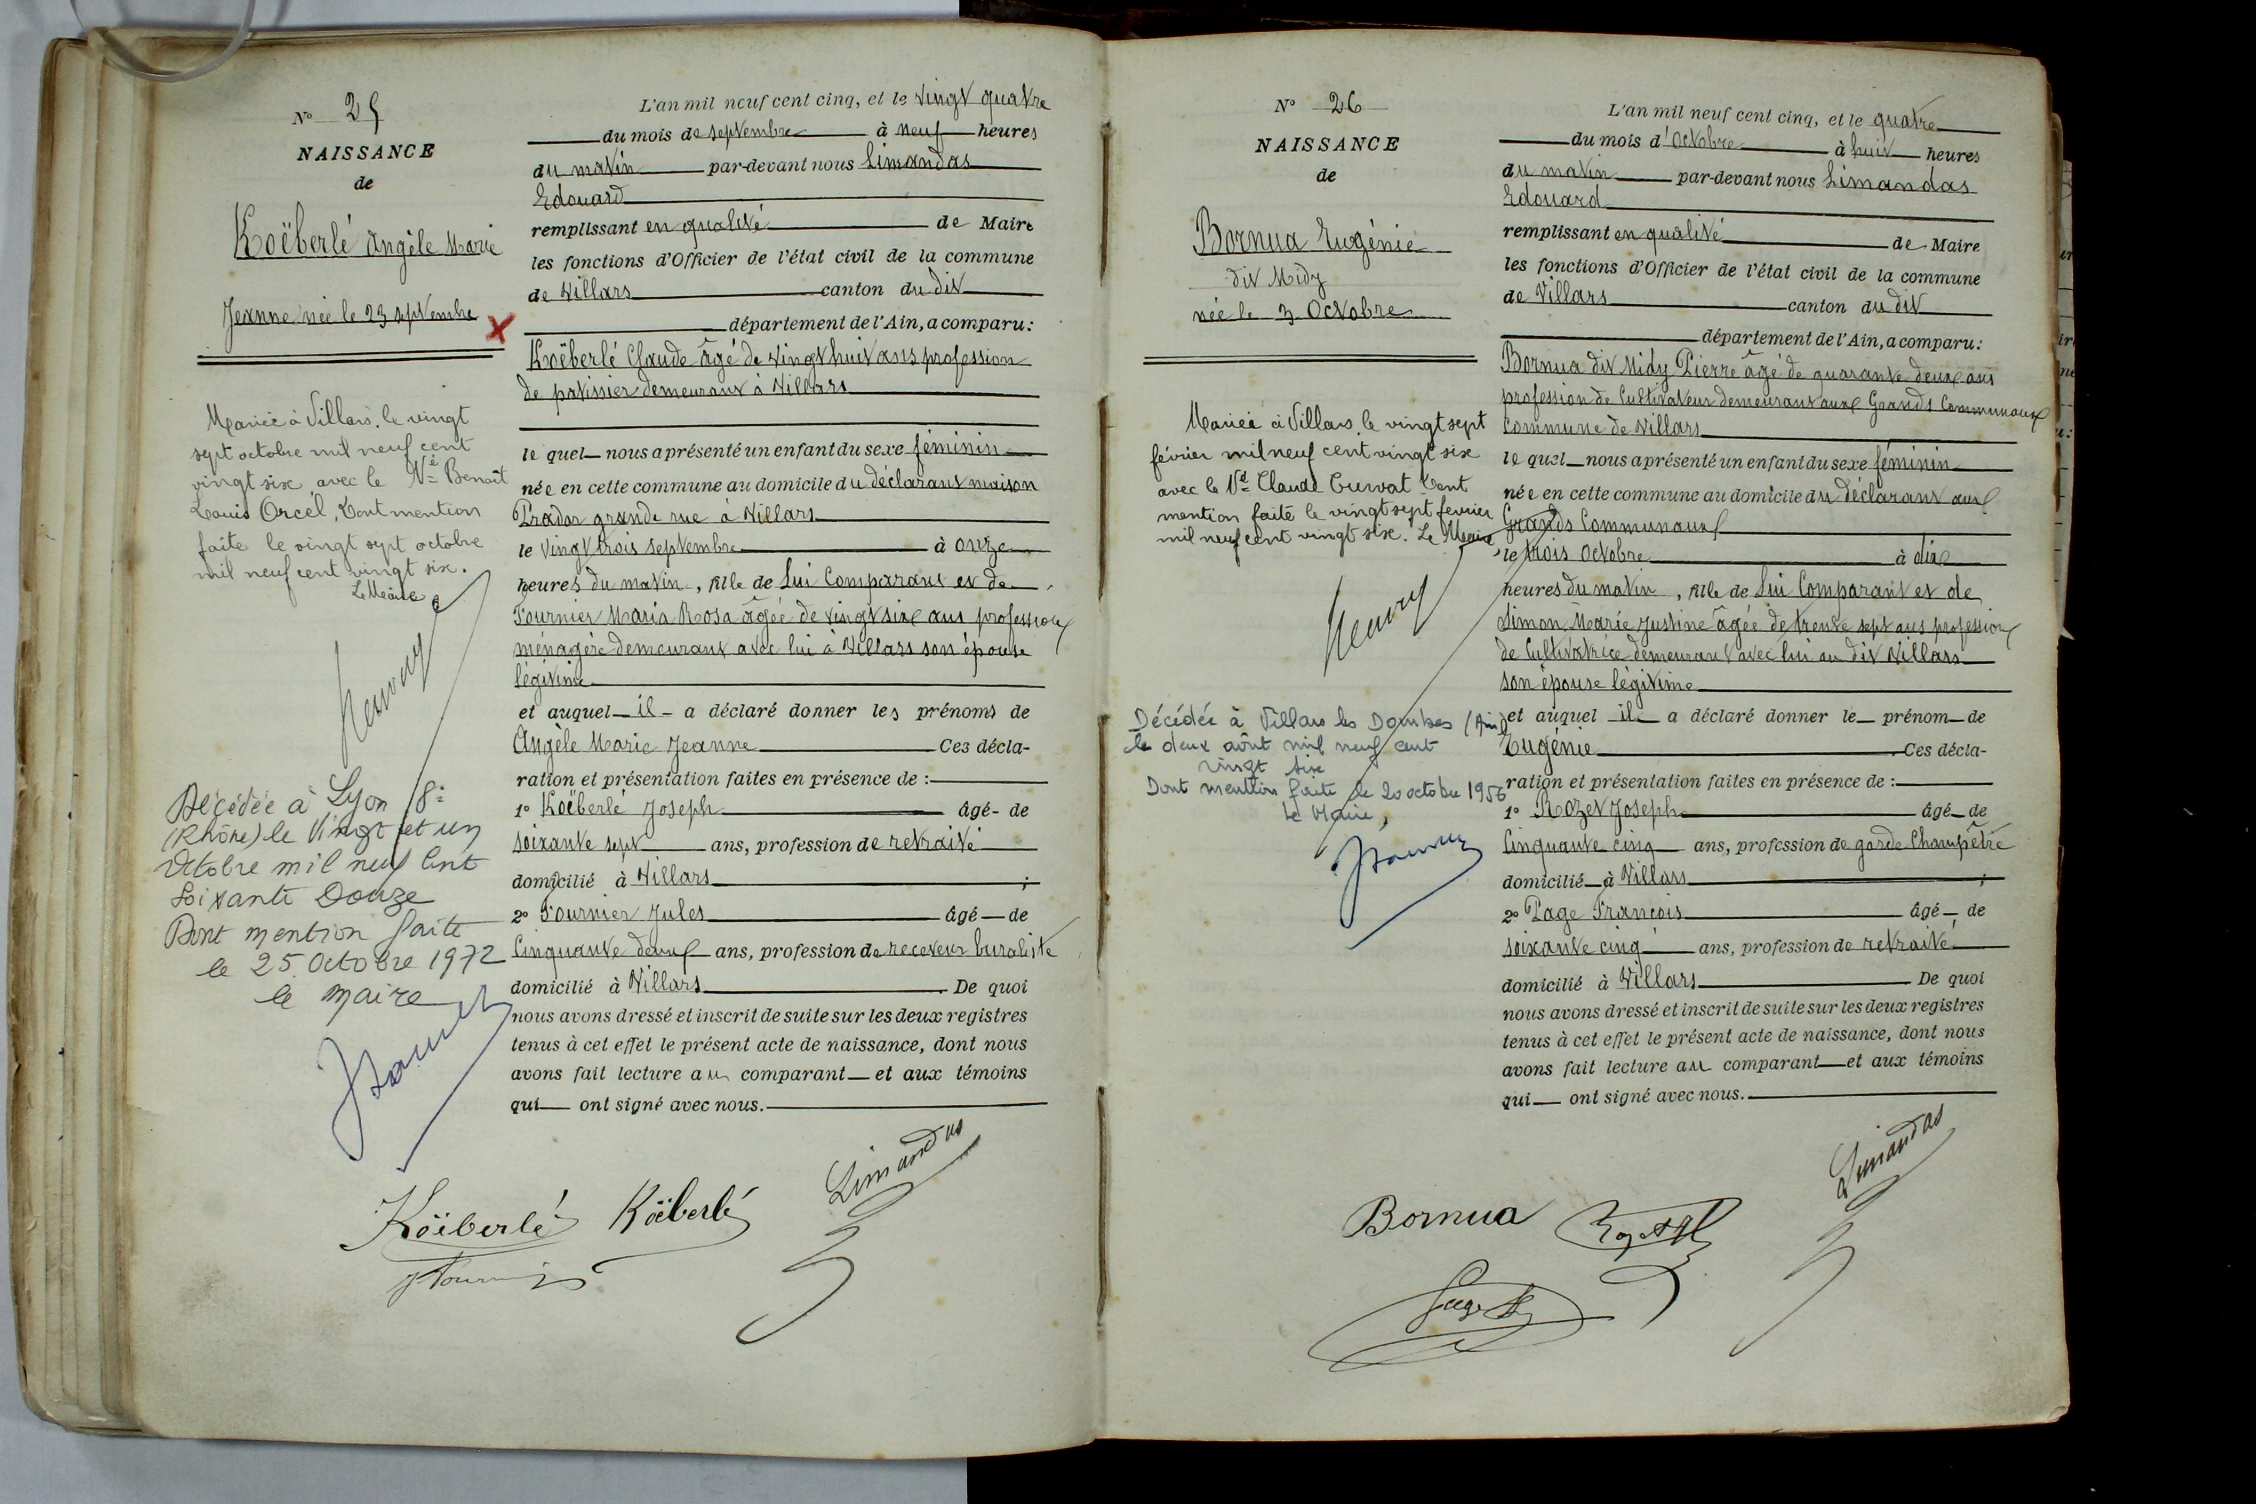 N° 25
NAISSANCE
de
Koëberlé Angèle Marie
Jeanne née le 23 septembre
X
Mariée à Villars, le vingt
sept octobre mil neuf cent
vingt six avec le Né Benoît
Louis Orcel, Dont mention
faite le vingt sept octobre
mil neuf cent vingt six.
Le Maire
Décédée à Lyon 8e
(Rhône) le Vingt et un
Octobre mil neuf Cent
Soixante Douze
Dont mention faite
le 25 Octobre 1972
le Maire
L'an mil neuf cent cinq, et le vingt quatre
du mois de septembre à neuf heures
du matin par-devant nous Limandas
Edouard
remplissant en qualité de Maire
les fonctions d'Officier de l'état civil de la commune
de Villars canton du dit
département de l'Ain, a comparu :
Koëberlé Claude âgé de vingt huit ans profession
de patissier demeurant à Villars
le quel nous a présenté un enfant du sexe féminin
née en cette commune au domicile du déclarant maison
Pradar grande rue à Villars
le vingt trois septembre à onze
heures du matin, fille de Lui Comparant et de
Fournier Maria Rosa âgée de vingt six ans profession
ménagère demeurant avec lui à Villars son épouse
légitime
et auquel il a déclaré donner les prénoms de
Angèle Marie Jeanne Ces décla-
ration et présentation faites en présence de :
1° Koëberlé Joseph âgé de
soixante sept ans, profession de retraité
domicilié à Villars ;
2° Fournier Jules âgé de
Cinquante deux ans, profession de receveur buraliste
domicilié à Villars. De quoi
nous avons dressé et inscrit de suite sur les deux registres
tenus à cet effet le présent acte de naissance, dont nous
avons fait lecture au comparant et aux témoins
qui ont signé avec nous.
Limandas
Koëberlé Koëberlé
Fournier
N° 26
NAISSANCE
de
Bornua Eugénie
dit Midy
née le 3 Octobre
Mariée à Villars, le vingt sept
février mil neuf cent vingt six
avec le Né Claude Curvat Dont
mention faite le vingt sept février
mil neuf cent vingt six. Le Maire
Décédée à Villars les Dombes (Ain)
le deux août mil neuf cent
vingt six
Dont mention faite le 20 octobre 1956
Le Maire,
L'an mil neuf cent cinq, et le quatre
du mois d'Octobre à huit heures
du matin par-devant nous Limandas
Edouard
remplissant en qualité de Maire
les fonctions d'Officier de l'état civil de la commune
de Villars canton du dit
département de l'Ain, a comparu :
Bornua dit Midy Pierre âgé de quarante deux ans
profession de Cultivateur demeurant aux Grands Communaux
Commune de Villars
le quel nous a présenté un enfant du sexe féminin
née en cette commune au domicile du déclarant aux
Grands Communaux
le trois Octobre à dix
heures du matin, fille de Lui Comparant et de
Simon Marie Justine âgée de trente sept ans profession
de Cultivatrice demeurant avec lui au dit Villars
son épouse légitime
et auquel il a déclaré donner le prénom de
Eugénie Ces décla-
ration et présentation faites en présence de :
1° Rozet Joseph âgé de
Cinquante cinq ans, profession de garde Champêtre
domicilié à Villars ;
2° Page François âgé de
soixante cinq ans, profession de retraité
domicilié à Villars De quoi
nous avons dressé et inscrit de suite sur les deux registres
tenus à cet effet le présent acte de naissance, dont nous
avons fait lecture au comparant et aux témoins
qui ont signé avec nous.
Limandas
Bornua